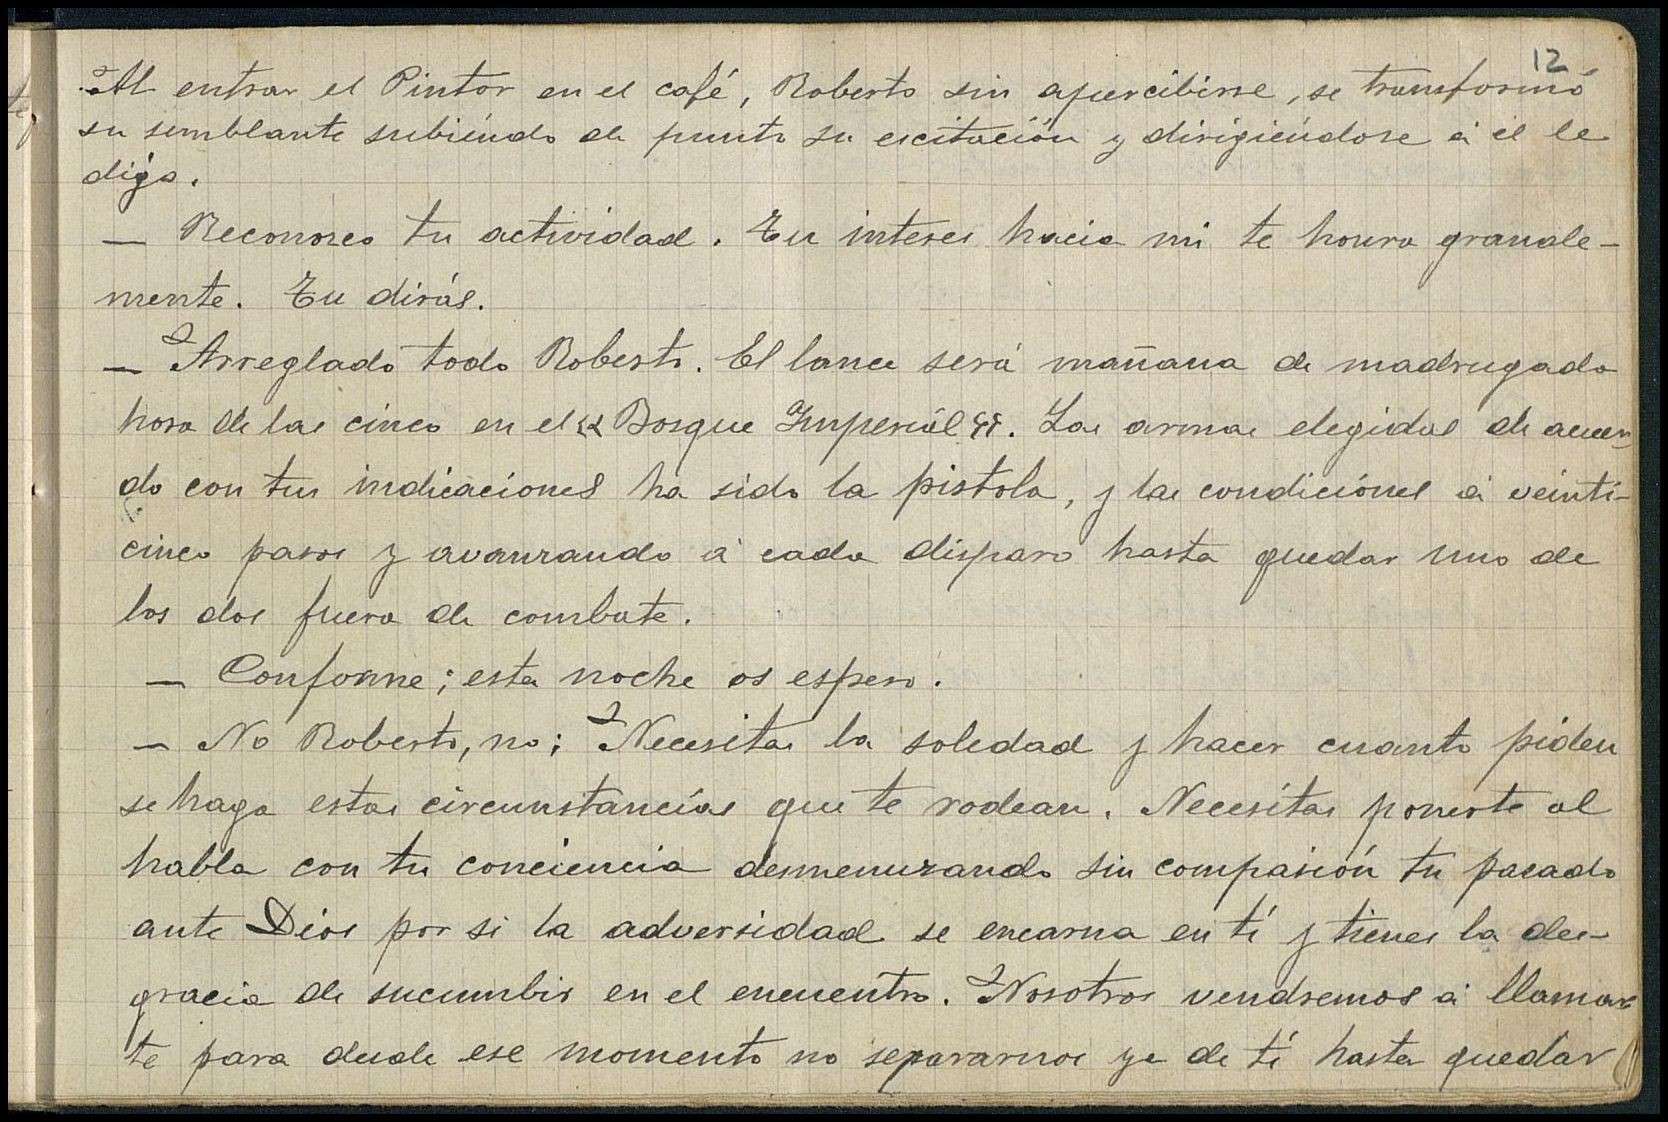 12
Al entrar el Pintor en el café, Roberto sin apercibirse, se transformó
su semblante subiéndo de punto su escitación y dirigiéndose á él le
dijo.
— Reconozco tu actividad. Tu interes hacia mi te honra grande-
mente. Tu dirás.
— Arreglado todo Roberto. El lance será mañana de madrugada
hora de las cinco en el «Bosque Imperiál». Las armas elegidas de acuer-
do con tus indicaciones ha sido la pistola, y las condiciónes á veinti-
cinco pasos y avanzando á cada disparo hasta quedar uno de
los dos fuera de combate.
— Conforme; esta noche os espero.
— No Roberto, no; Necesitas la soledad y hacer cuanto piden
se haga estas circunstancias que te rodean. Necesitas ponerte al
habla con tu conciencia desmenuzando sin compasión tu pasado
ante Dios por si la adversidad se encarna en tí y tienes la des-
gracia de sucumbir en el encuentro. Nosotros vendremos á llamar-
te para desde ese momento no separarnos ya de tí hasta quedar